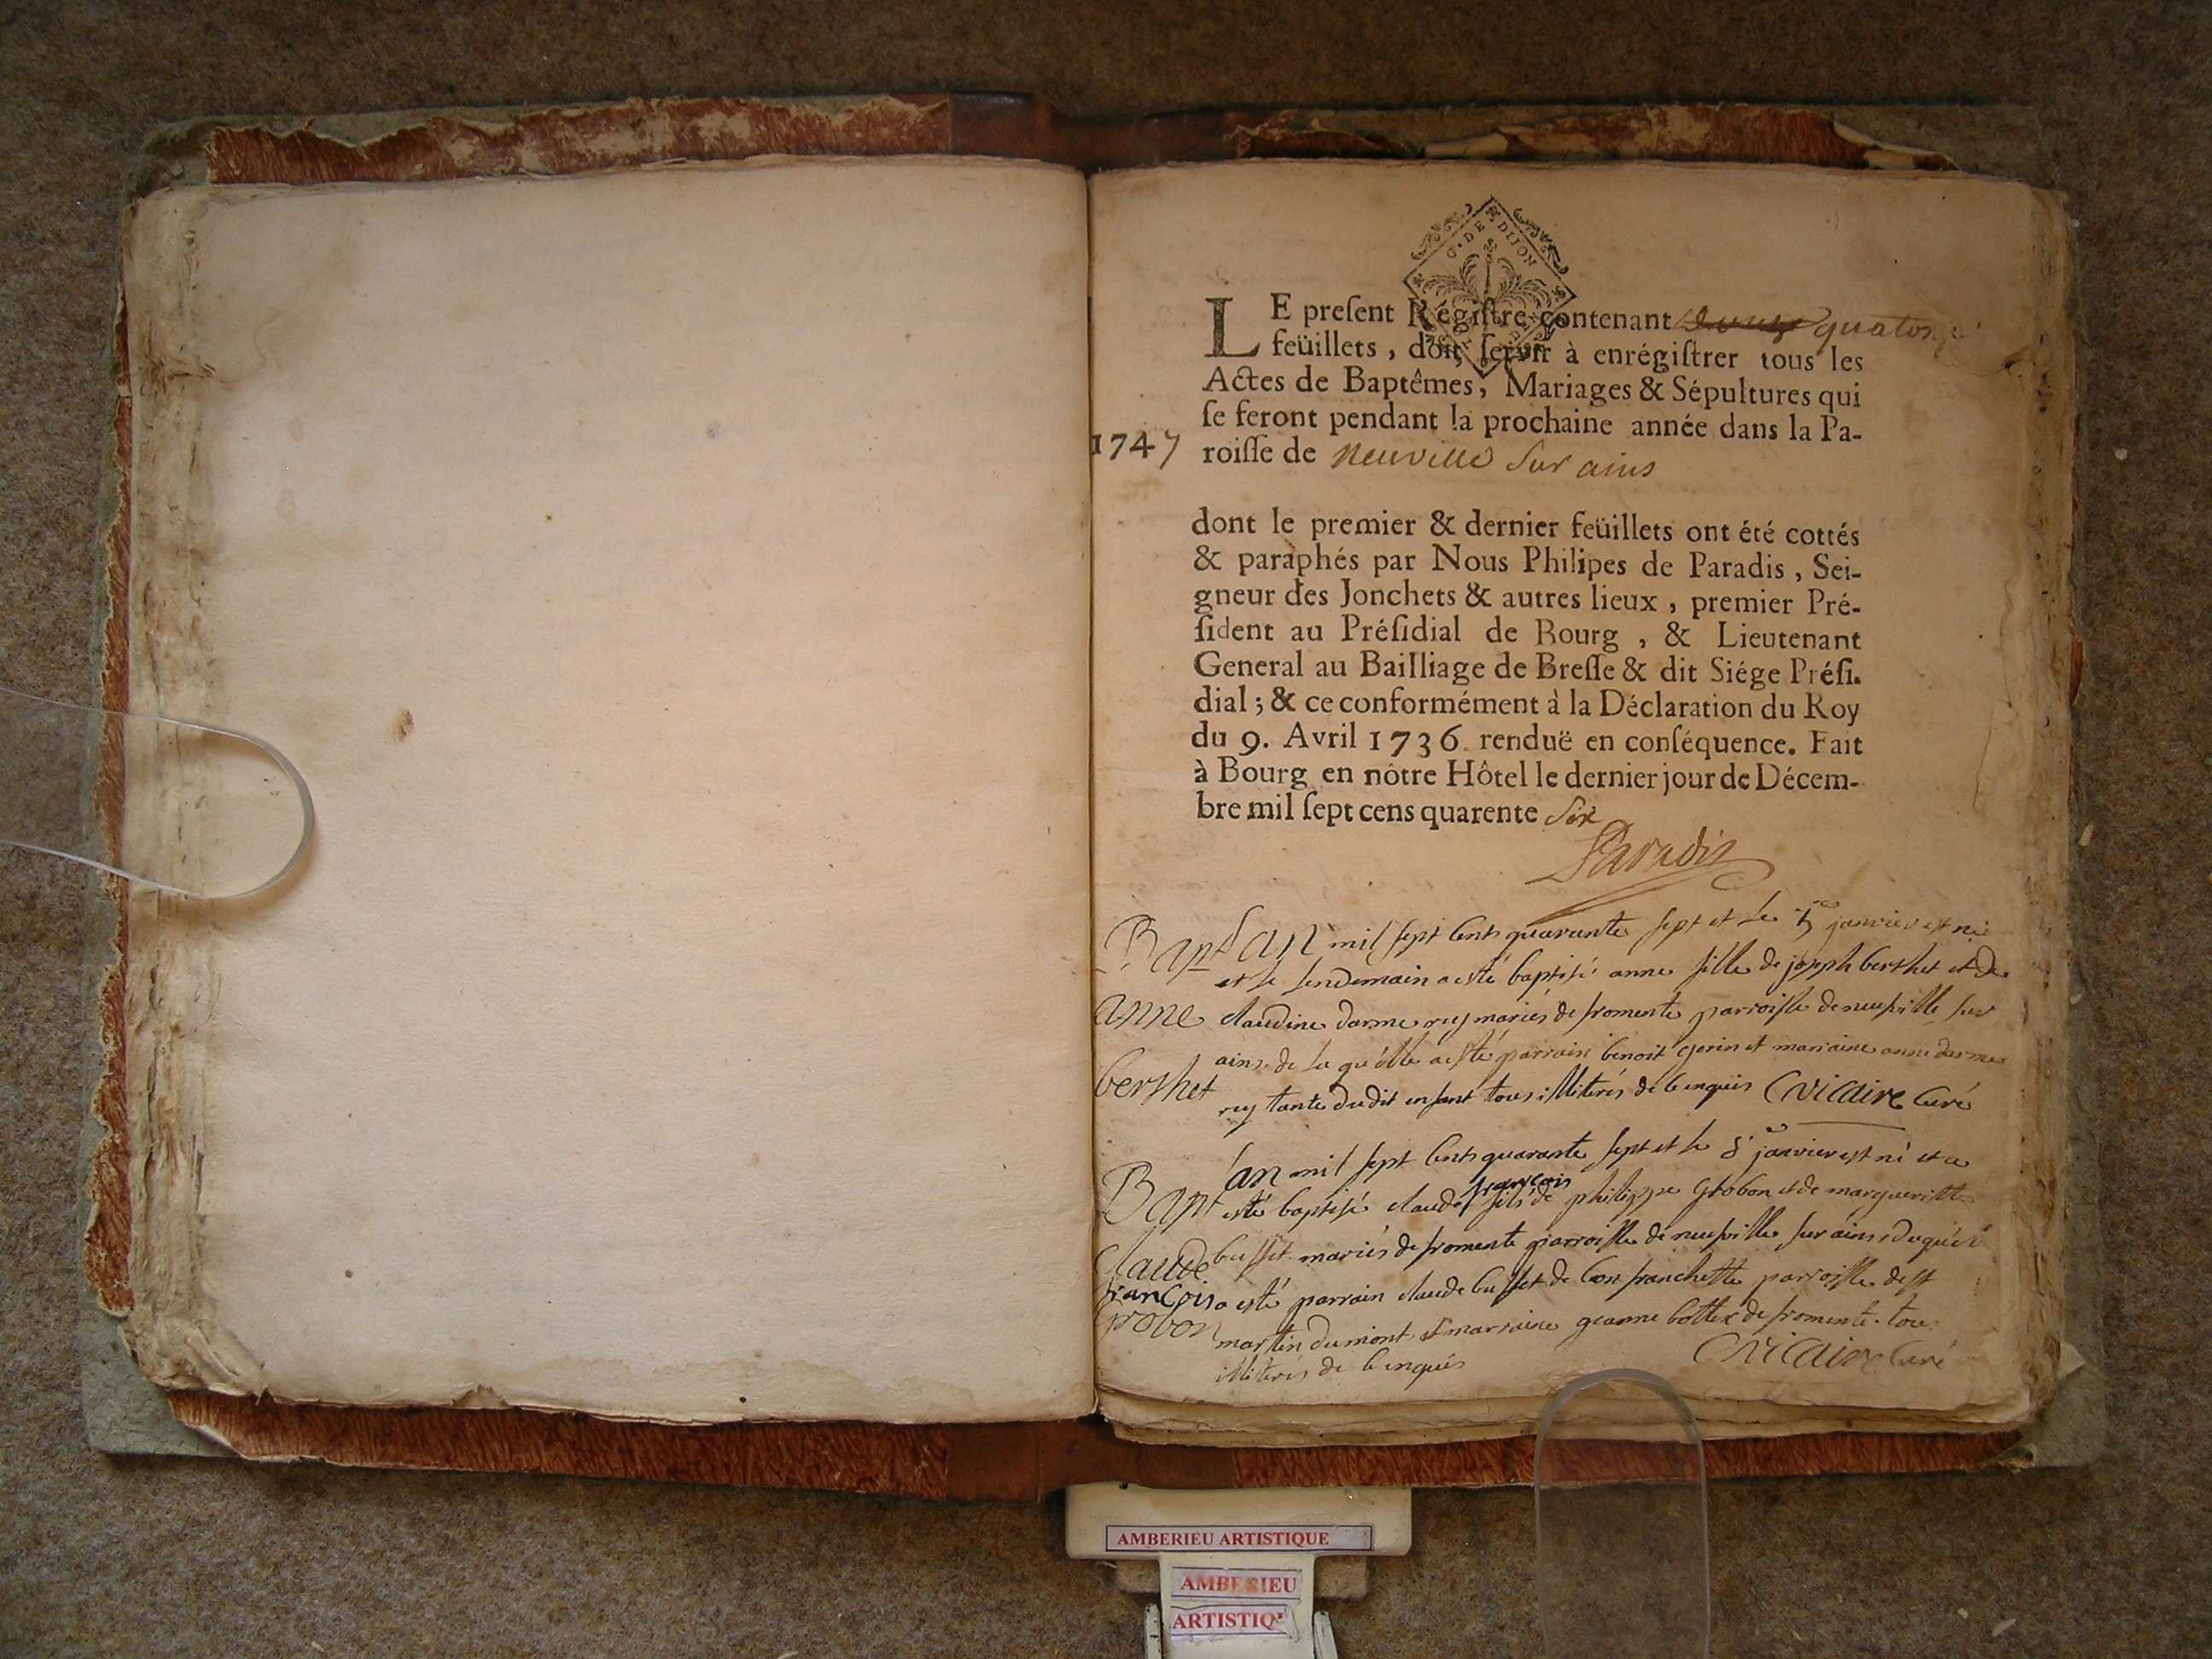 G. DE DIJON
LE preſent Régiſtre contenant douze quatorze
feüillets, doit ſervir à enrégiſtrer tous les
Actes de Baptêmes, Mariages & Sépultures qui
ſe feront pendant la prochaine année dans la Pa-
1747 roiſſe de neuville sur ains
dont le premier & dernier feüillets ont été cottés
& paraphés par Nous Philipes de Paradis, Sei-
gneur des Jonchets & autres lieux, premier Pré-
ſident au Préſidial de Bourg, & Lieutenant
General au Bailliage de Breſſe & dit Siége Préſi-
dial; & ce conformément à la Déclaration du Roy
du 9. Avril 1736. renduë en conſéquence. Fait
à Bourg en nôtre Hôtel le dernier jour de Décem-
bre mil ſept cens quarente six
Paradis
Bapt
anne
berthet
l'an mil sept cents quarante sept et le 5e janvier est né
et le lendemain a esté baptisé anne fille de joseph berthet et de
claudine darmeruy mariés de fromente parroisse de neufville sur
ains de la qu'elle a esté parrain benoit gerin et marraine anne darme
ruy tante dudit enfant tous illiterés de ce enquis C vicaire curé
Bapt
Claude
françois
grobon
l'an mil sept cents quarante sept et le 8e janvier est né et a
esté baptisé claude françois fils de philippe grobon et de margueritte
buffet mariés de fromente parroisse de neufville sur ains duquel
a esté parrain claude buffet de bon franchette parroisse de st
martin du mont et marraine jeanne bottex de fromente. tous
illiterés de ce enquis C vicaire curé
AMBERIEU ARTISTIQUE
AMBERIEU
ARTISTIQ